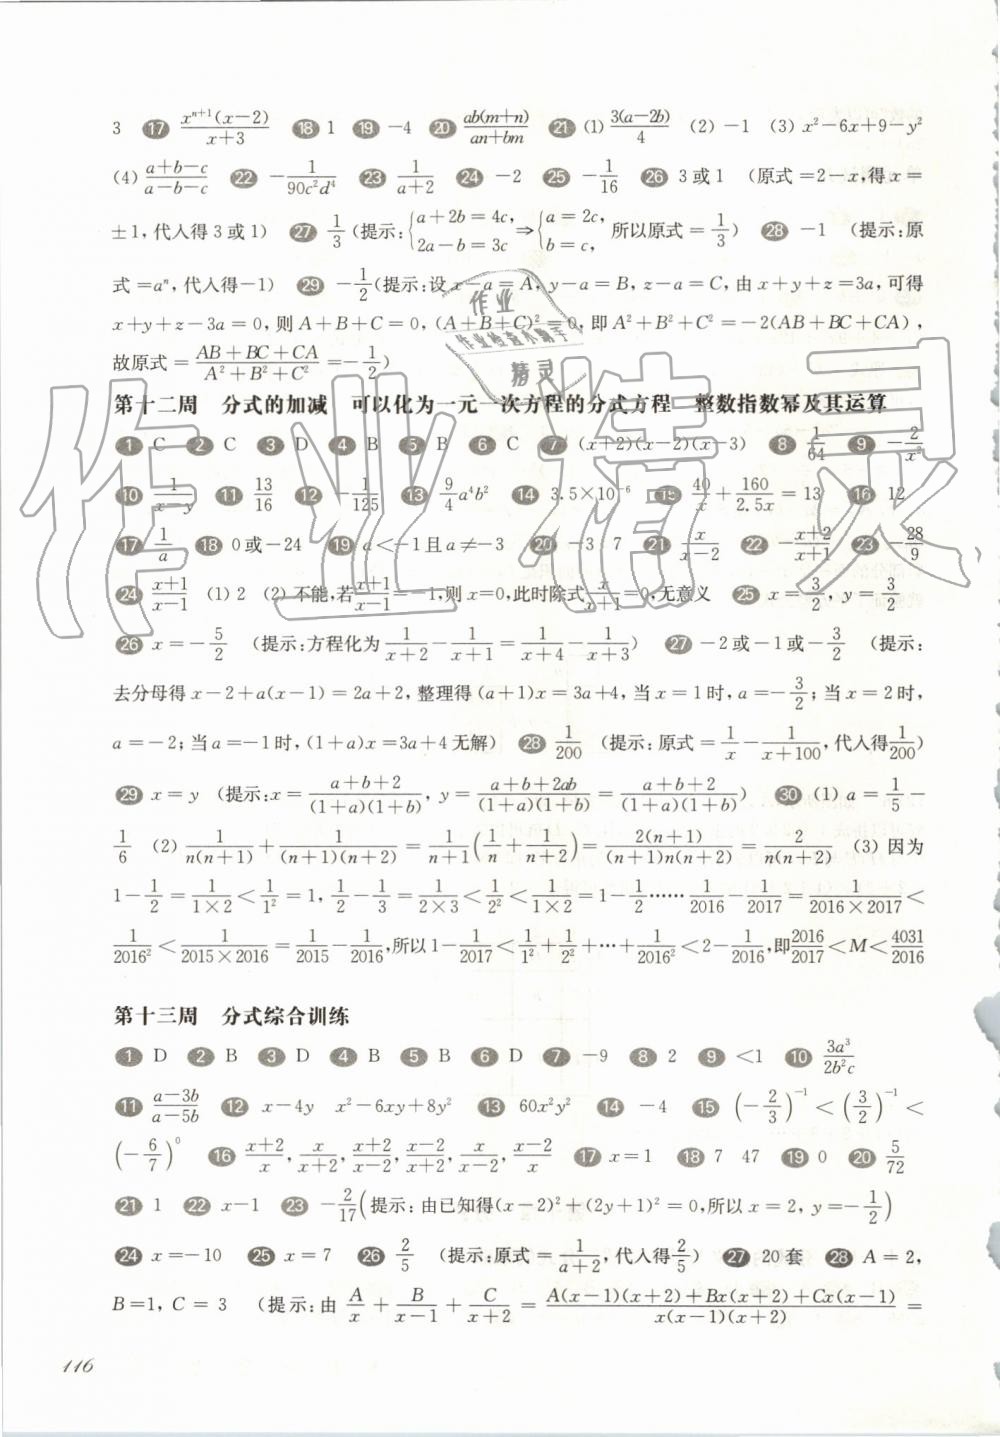 3 ⑰ \frac{x^{n+1}(x-2)}{x+3} ⑱ 1 ⑲ -4 ⑳ \frac{ab(m+n)}{an+bm} ㉑ (1) \frac{3(a-2b)}{4} (2) -1 (3) x²-6x+9-y²
(4) \frac{a+b-c}{a-b-c} ㉒ -\frac{1}{90c²d⁴} ㉓ \frac{1}{a+2} ㉔ -2 ㉕ -\frac{1}{16} ㉖ 3或1 (原式=2-x,得x=
±1,代入得3或1) ㉗ \frac{1}{3} (提示:{a+2b=4c, 2a-b=3c ⇒ {a=2c, b=c, 所以原式=\frac{1}{3}) ㉘ -1 (提示:原
式=aⁿ,代入得-1) ㉙ -\frac{1}{2}(提示:设x-a=A,y-a=B,z-a=C,由x+y+z=3a,可得
x+y+z-3a=0,则A+B+C=0,(A+B+C)²=0,即A²+B²+C²=-2(AB+BC+CA),
故原式=\frac{AB+BC+CA}{A²+B²+C²}=-\frac{1}{2})
第十二周 分式的加减 可以化为一元一次方程的分式方程 整数指数幂及其运算
① C ② C ③ D ④ B ⑤ B ⑥ C ⑦ (x+2)(x-2)(x-3) ⑧ \frac{1}{64} ⑨ -\frac{2}{x²}
⑩ \frac{1}{x-y} ⑪ \frac{13}{16} ⑫ -\frac{1}{125} ⑬ \frac{9}{4}a⁴b² ⑭ 3.5×10⁻⁶ ⑮ \frac{40}{x}+\frac{160}{2.5x}=13 ⑯ 12
⑰ \frac{1}{a} ⑱ 0或-24 ⑲ a<-1且a≠-3 ⑳ -3 7 ㉑ \frac{x}{x-2} ㉒ -\frac{x+2}{x+1} ㉓ -\frac{28}{9}
㉔ \frac{x+1}{x-1} (1) 2 (2) 不能,若\frac{x+1}{x-1}=-1,则x=0,此时除式\frac{x}{x+1}=0,无意义 ㉕ x=\frac{3}{2},y=\frac{3}{2}
㉖ x=-\frac{5}{2} (提示:方程化为\frac{1}{x+2}-\frac{1}{x+1}=\frac{1}{x+4}-\frac{1}{x+3}) ㉗ -2或-1或-\frac{3}{2} (提示:
去分母得x-2+a(x-1)=2a+2,整理得(a+1)x=3a+4,当x=1时,a=-\frac{3}{2};当x=2时,
a=-2;当a=-1时,(1+a)x=3a+4无解) ㉘ \frac{1}{200} (提示:原式=\frac{1}{x}-\frac{1}{x+100},代入得\frac{1}{200})
㉙ x=y (提示:x=\frac{a+b+2}{(1+a)(1+b)},y=\frac{a+b+2ab}{(1+a)(1+b)}=\frac{a+b+2}{(1+a)(1+b)}) ㉚ (1) a=\frac{1}{5}-
\frac{1}{6} (2) \frac{1}{n(n+1)}+\frac{1}{(n+1)(n+2)}=\frac{1}{n+1}(\frac{1}{n}+\frac{1}{n+2})=\frac{2(n+1)}{(n+1)n(n+2)}=\frac{2}{n(n+2)} (3) 因为
1-\frac{1}{2}=\frac{1}{1×2}<\frac{1}{1²}=1,\frac{1}{2}-\frac{1}{3}=\frac{1}{2×3}<\frac{1}{2²}<\frac{1}{1×2}=1-\frac{1}{2}……\frac{1}{2016}-\frac{1}{2017}=\frac{1}{2016×2017}<
\frac{1}{2016²}<\frac{1}{2015×2016}=\frac{1}{2015}-\frac{1}{2016},所以1-\frac{1}{2017}<\frac{1}{1²}+\frac{1}{2²}+…+\frac{1}{2016²}<2-\frac{1}{2016},即\frac{2016}{2017}<M<\frac{4031}{2016}
第十三周 分式综合训练
① D ② B ③ D ④ B ⑤ B ⑥ D ⑦ -9 ⑧ 2 ⑨ <1 ⑩ \frac{3a³}{2b²c}
⑪ \frac{a-3b}{a-5b} ⑫ x-4y x²-6xy+8y² ⑬ 60x²y² ⑭ -4 ⑮ (-\frac{2}{3})⁻¹<(\frac{3}{2})⁻¹<
(-\frac{6}{7})⁰ ⑯ \frac{x+2}{x},\frac{x}{x+2},\frac{x+2}{x-2},\frac{x-2}{x+2},\frac{x}{x-2},\frac{x-2}{x} ⑰ x=1 ⑱ 7 47 ⑲ 0 ⑳ \frac{5}{72}
㉑ 1 ㉒ x-1 ㉓ -\frac{2}{17}(提示:由已知得(x-2)²+(2y+1)²=0,所以x=2,y=-\frac{1}{2})
㉔ x=-10 ㉕ x=7 ㉖ \frac{2}{5} (提示:原式=\frac{1}{a+2},代入得\frac{2}{5}) ㉗ 20套 ㉘ A=2,
B=1,C=3 (提示:由\frac{A}{x}+\frac{B}{x-1}+\frac{C}{x+2}=\frac{A(x-1)(x+2)+Bx(x+2)+Cx(x-1)}{x(x-1)(x+2)}=
116
作业精灵
作业
作业检查小助手
精灵